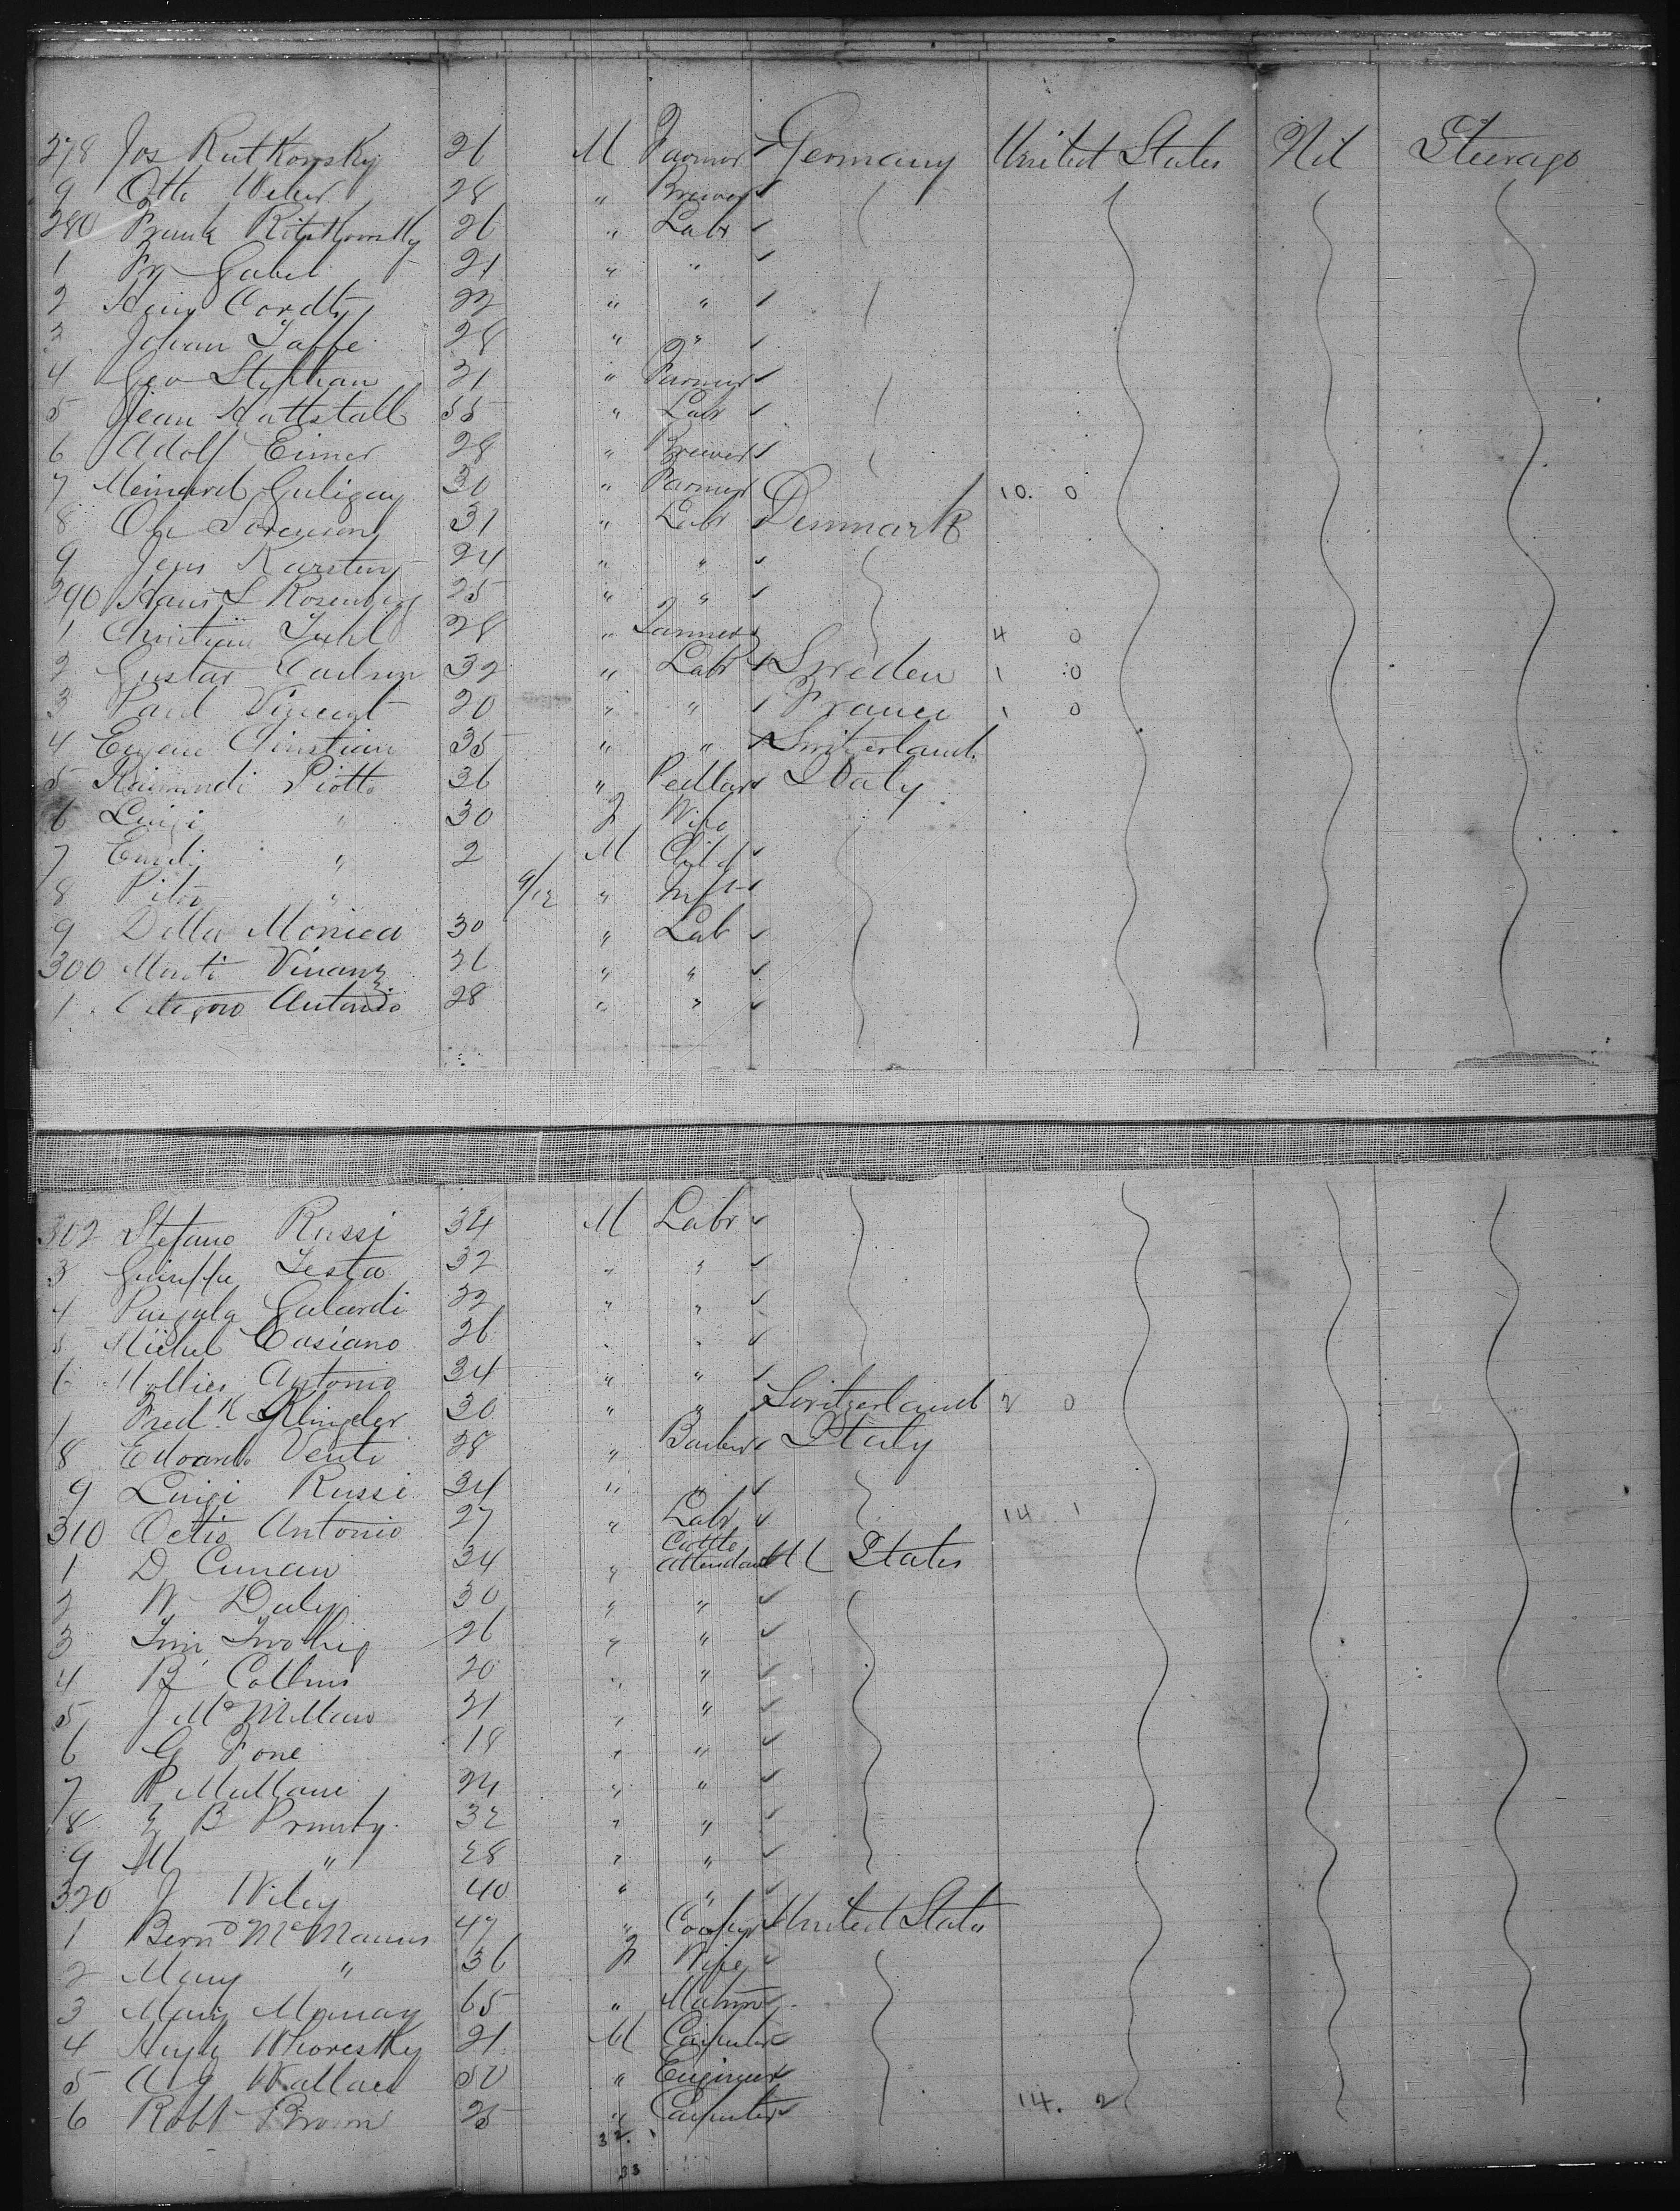 278 Jos Rutkowsky 26 M Farmer ✓ Germany United States Nil Steerage
9 Otto Weber 28 " Brewer ✓
280 Frank 26 " Labr ✓
1 Fr Gabel 21 " " ✓
2 Hein Cordts 22 " " ✓
3 Johan Jaffe 28 " " ✓
4 Geo Stephan 31 " Farmer ✓
5 Jean Hattstall 35 " Labr ✓
6 Adolf Eimer 28 " Brewer ✓
7 Meinard 30 " Farmer 10. 0
8 Ole Sorenson 31 " Labr Denmark
9 Jens Karsten 24 " " ✓
290 Hans L Rosenberg 25 " " ✓
1 Christian Juhl 28 " Tanner 4 0
2 Gustav Carlson 32 " Labr ✓ Sweden 1 0
3 Paul Vincent 20 " " ✓ France 1 0
4 Eugene Christian 35 " " Switzerland
5 Raimondi Piotto 36 " Pedlar ✓ Italy
6 Luigi " 30 F Wife
7 " 2 M Child ✓
8 Pitro " 9/12 " Inft ✓
9 Della Monica 30 " Lab ✓
300 Monti 26 " " ✓
1 Antonio 28 " " ✓
302 Stefano Russi 34 M Labr ✓
3 Testa 32 " " ✓
4 Galardi 22 " " ✓
5 Michel Casiano 26 " " ✓
6 Antonio 34 " " ✓
7 Fredk Klingler 30 " " Switzerland 2 0
8 Edoardo Vento 28 " Barber ✓ Italy
9 Luigi Russi 34 " " ✓
310 Octio Antonio 27 " Labr ✓ 14 1
1 D 34 " Cattle attendant U States
2 W Daly 30 " " ✓
3 Tim Twohig 26 " " ✓
4 Collins 20 " " ✓
5 J McMillan 21 " " ✓
6 G Fone 18 " " ✓
7 P Mullane 24 " " ✓
8 B 32 " " ✓
9 M " 28 " " ✓
320 J Wiley 40 " " ✓
1 Bernd McManus 47 " Cooper ✓ United States
2 Mary " 36 F Wife ✓
3 Mary 65 " Matron ✓
4 Hugh 21 M Carpenter ✓
5 A G Wallace 50 " Engineer ✓
6 Robt Brown 25 " Carpenter ✓ 14. 2
32.
33